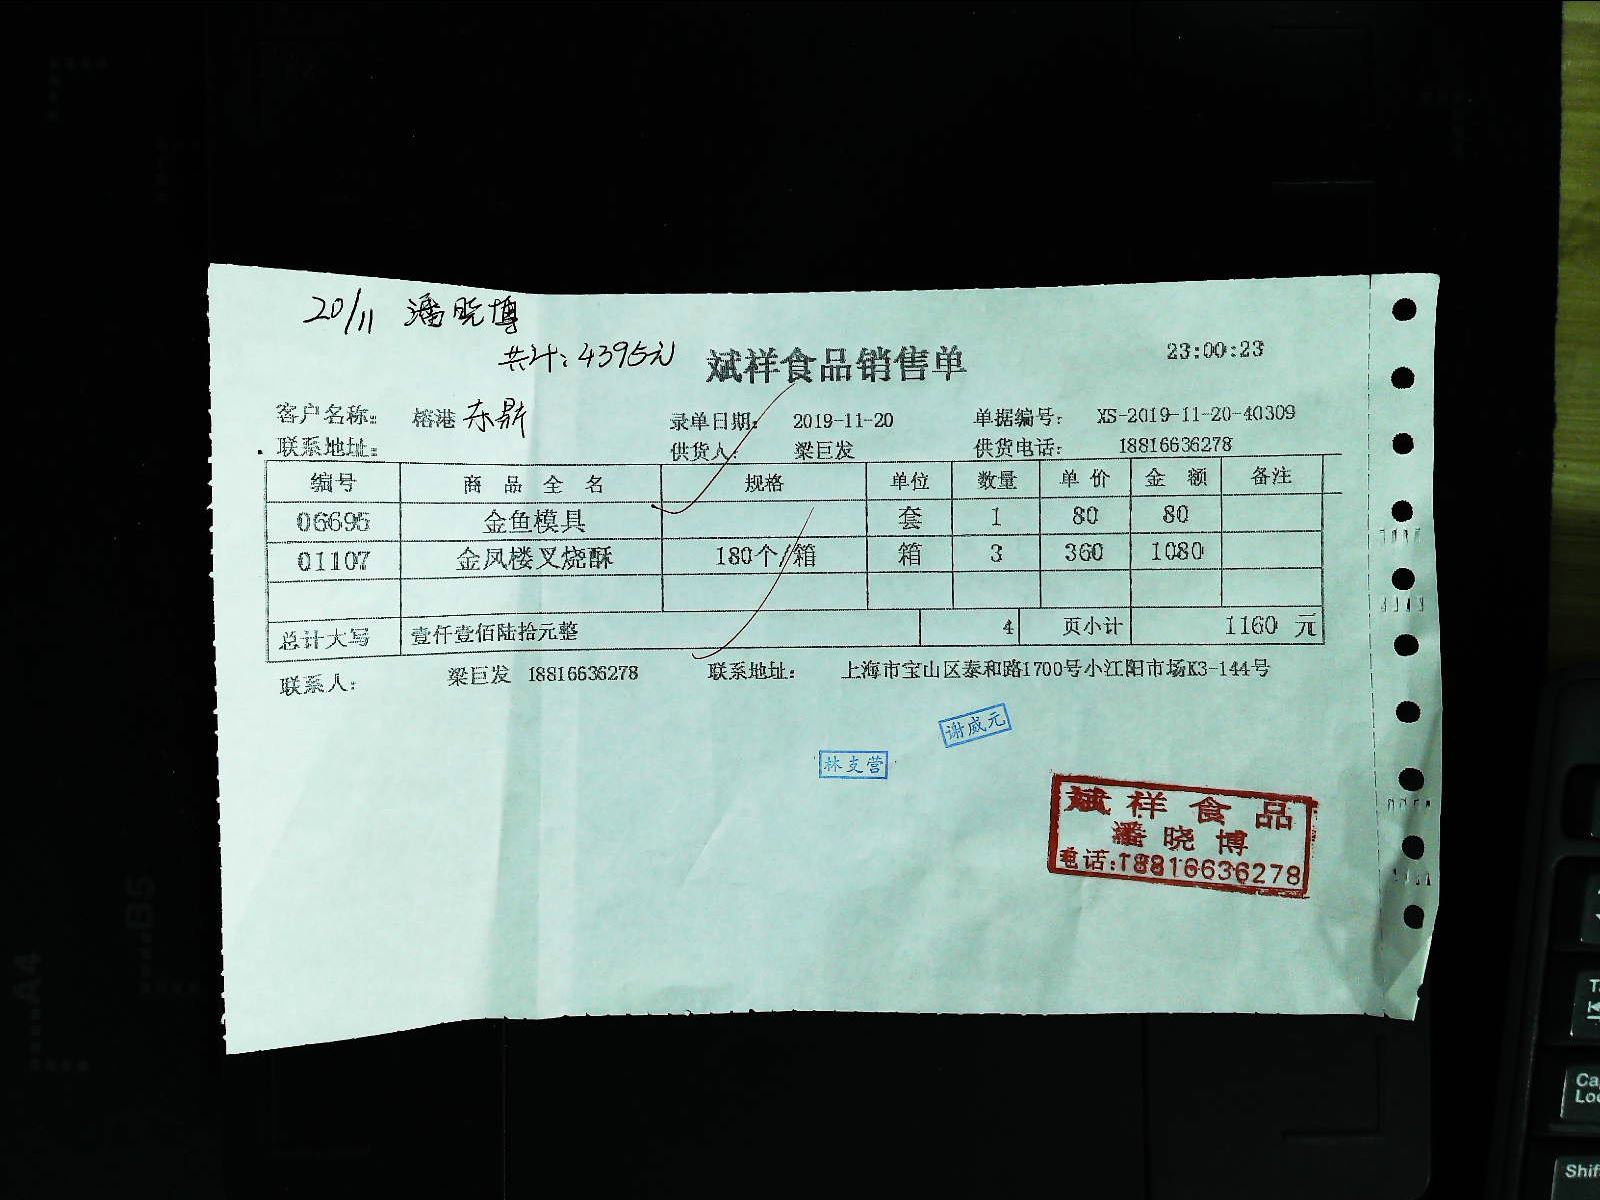 20/11 潘晓博
共计:4395元
斌祥食品销售单 23:00:23
客户名称: 榕港 东鼎 录单日期: 2019-11-20 单据编号: XS-2019-11-20-40309
联系地址: 供货人: 梁巨发 供货电话: 18816636278
编号 商品全名 规格 单位 数量 单价 金额 备注
06695 金鱼模具 套 1 80 80
01107 金凤楼叉烧酥 180个/箱 箱 3 360 1080
总计大写 壹仟壹佰陆拾元整 4 页小计 1160 元
联系人: 梁巨发 18816636278 联系地址: 上海市宝山区泰和路1700号小江阳市场K3-144号
谢威元
林支营
斌祥食品
潘晓博
电话:18816636278
A4
B5
Shif